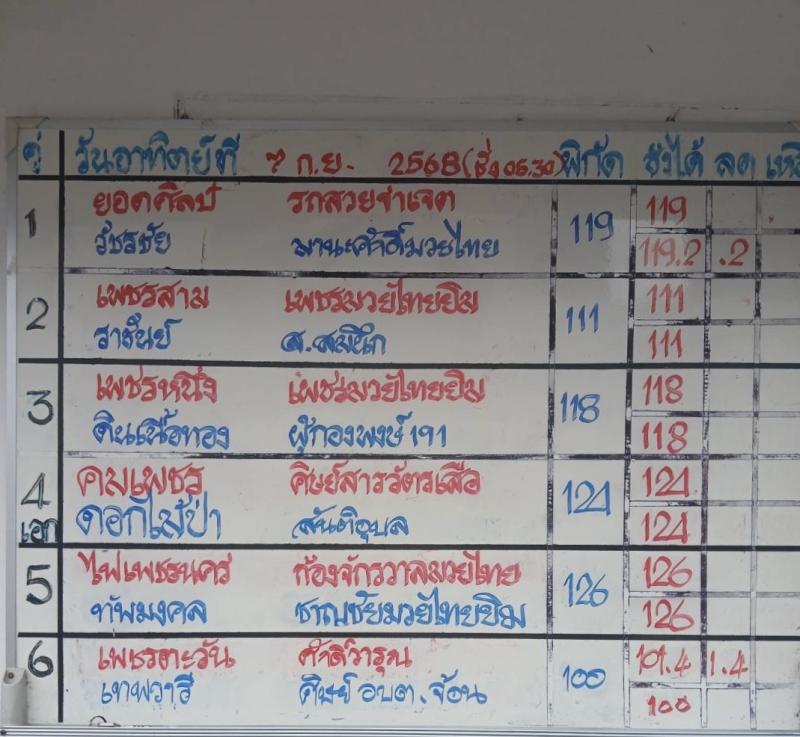 คู่ วันอาทิตย์ที่ 7 ก.ย. 2568 (ชั่ง 05.30) พิกัด ชั่งได้ ลด
1 ยอดศิลป์ รถสวยชำเจต 119 119
วัชรชัย มานะศักดิ์มวยไทย 119.2 .2
2 เพชรสาม เพชรมวยไทยยิม 111 111
ราชันย์ ส.สมนึก 111
3 เพชรหนึ่ง เพชรมวยไทยยิม 118 118
ดินเนื้อทอง ผู้กองพงษ์191 118
4 คมเพชร ศิษย์สารวัตรเสือ 124 124
เอก ดอกไม้ป่า สันติอุบล 124
5 ไฟเพชรนคร ก้องจักรวาลมวยไทย 126 126
ทัพมงคล ชาญชัยมวยไทยยิม 126
6 เพชรตะวัน ศักดิ์วารุณ 100 101.4 1.4
เทพวารี ศิษย์ อบต.จ้อน 100